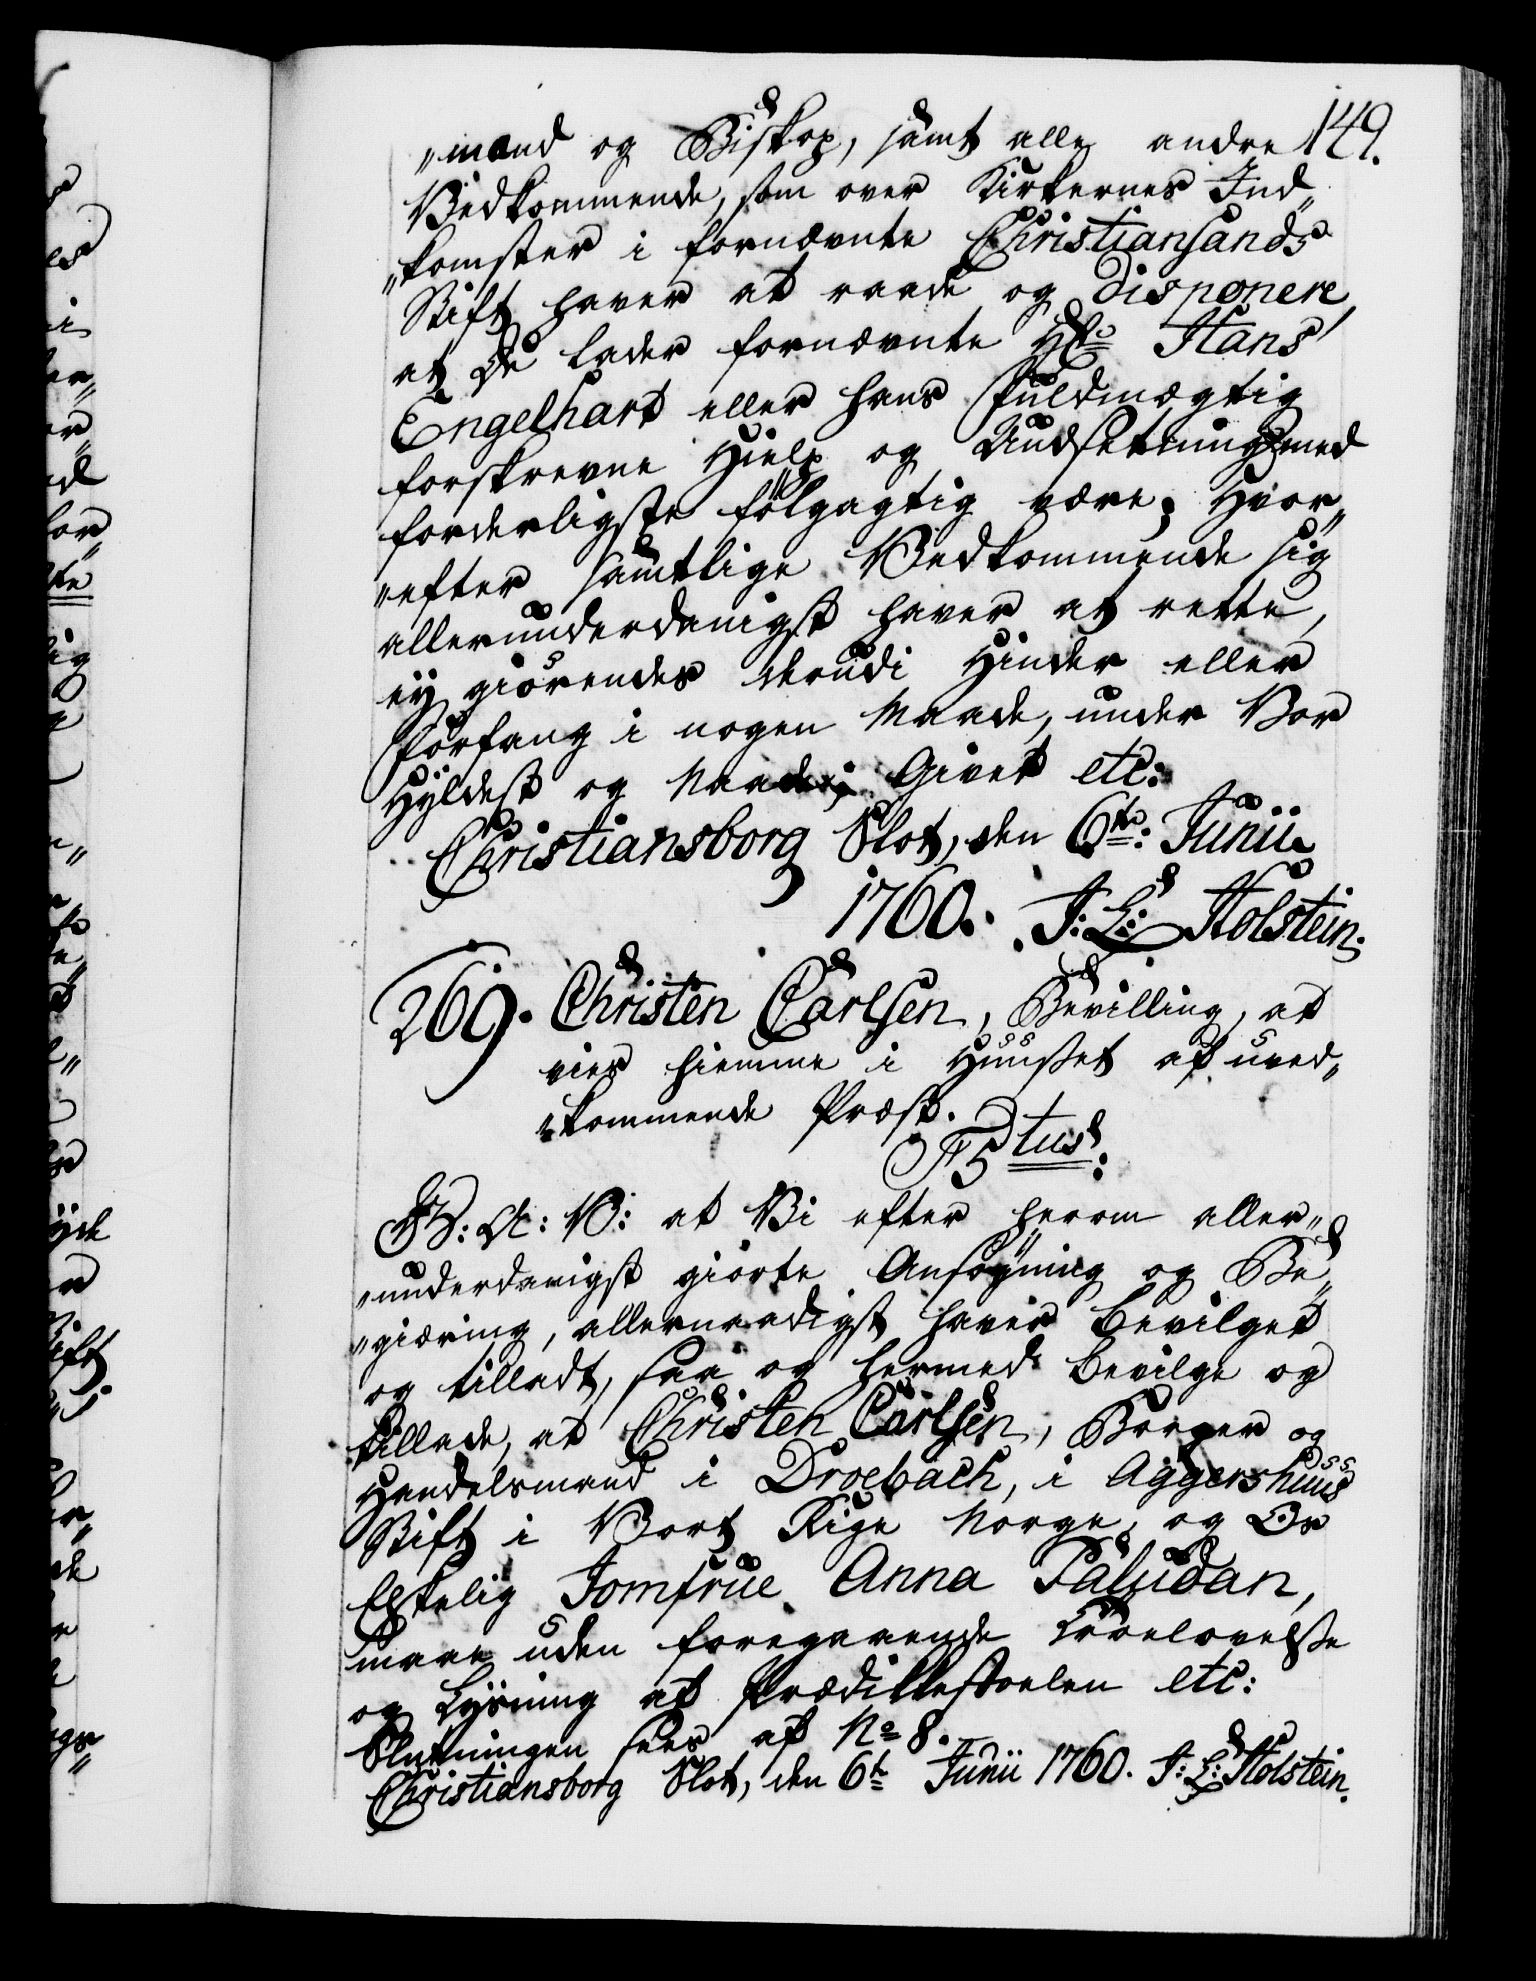 149.
„mand og Biskop, samt alle andre
Vedkommende, som over Kirkernes Ind„
„komster i fornævnte Christiansands
Stift haver at raade og disponere,
at De lader fornævnte Hr. Hans
Engelhart eller hans Fuldmægtig
forskrevne Hielp og Undsetning med
forderligste følgagtig være; Hvor„
„efter samtlige Vedkommende sig
allerunderdanigst haver at rette,
ey giørendes derudi Hinder eller
Forfang i nogen Maade, under Vor
Hyldest og Naade; Givet etc:
Christiansborg Slot, den 6te: Junii
1760. J: L: Holstein.
269. Christen Carlsen, Bevilling, at
vies hiemme i Huuset af uved„
„kommende Præst.
F5tus:
G: A: V: at Vi efter herom aller„
„underdanigst giorte Ansøgning og Be„
„giæring, allernaadigst haver bevilget
og tilladt, saa og hermed bevilge og
tillade, at Christen Carlsen, Borger og
Handelsmand i Droebach, i Aggershuus
Stift i Vort Rige Norge, og Os
Elskelig Jomfrue Anna Paludan,
maae uden foregaaende Troelovelse
og Lysning af Prædikestoelen etc:
Slutningen sees af No 8.
Christiansborg Slot, den 6te Junii 1760. J: L: Holstein.